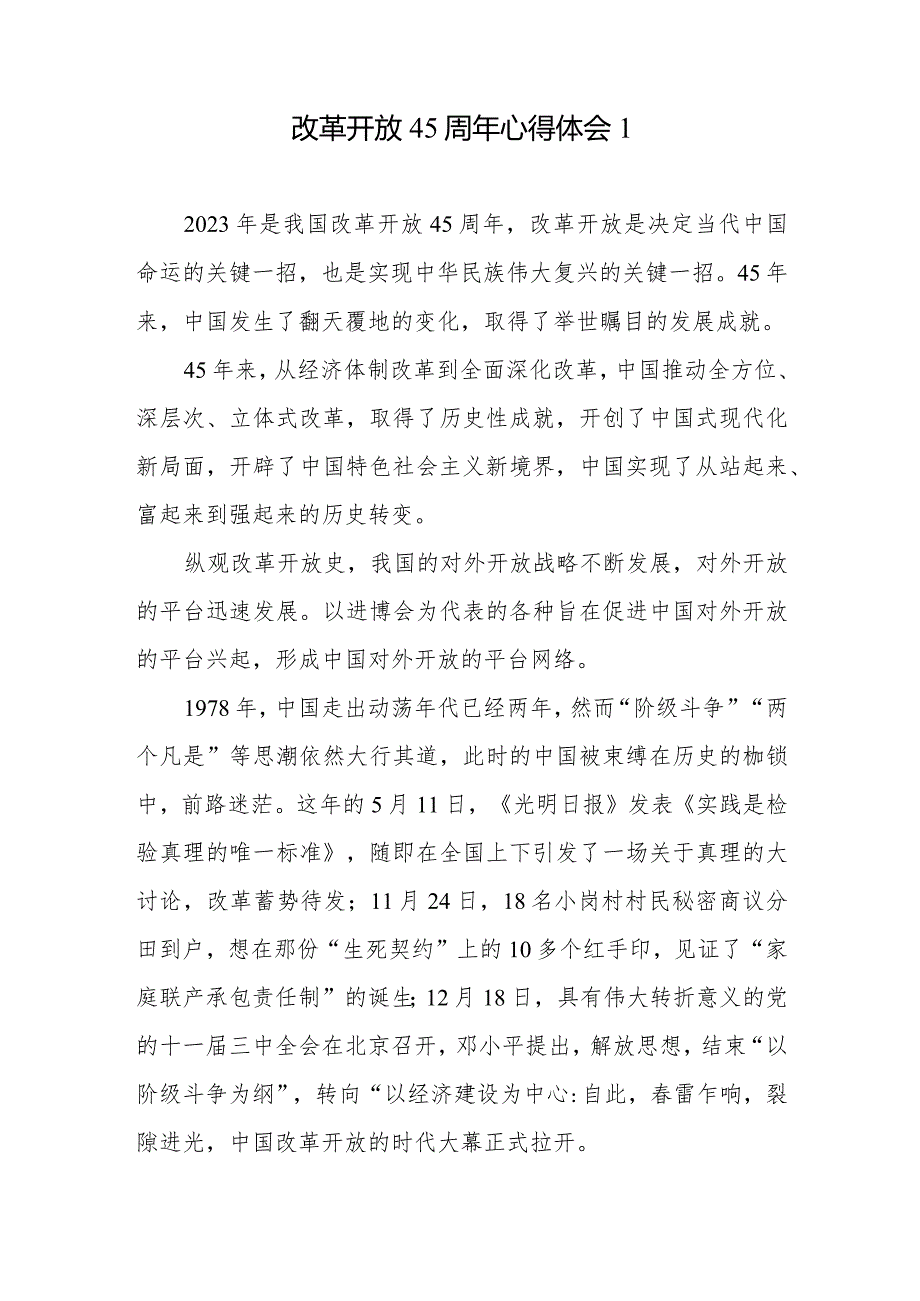 改革开放45周年心得体会1
2023年是我国改革开放45周年，改革开放是决定当代中国
命运的关键一招，也是实现中华民族伟大复兴的关键一招。45年
来，中国发生了翻天覆地的变化，取得了举世瞩目的发展成就。
45年来，从经济体制改革到全面深化改革，中国推动全方位、
深层次、立体式改革，取得了历史性成就，开创了中国式现代化
新局面，开辟了中国特色社会主义新境界，中国实现了从站起来、
富起来到强起来的历史转变。
纵观改革开放史，我国的对外开放战略不断发展，对外开放
的平台迅速发展。以进博会为代表的各种旨在促进中国对外开放
的平台兴起，形成中国对外开放的平台网络。
1978年，中国走出动荡年代已经两年，然而“阶级斗争”“两
个凡是”等思潮依然大行其道，此时的中国被束缚在历史的枷锁
中，前路迷茫。这年的5月11日，《光明日报》发表《实践是检
验真理的唯一标准》，随即在全国上下引发了一场关于真理的大
讨论，改革蓄势待发；11月24日，18名小岗村村民秘密商议分
田到户，想在那份“生死契约”上的10多个红手印，见证了“家
庭联产承包责任制”的诞生；12月18日，具有伟大转折意义的党
的十一届三中全会在北京召开，邓小平提出，解放思想，结束“以
阶级斗争为纲”，转向“以经济建设为中心：自此，春雷乍响，裂
隙进光，中国改革开放的时代大幕正式拉开。